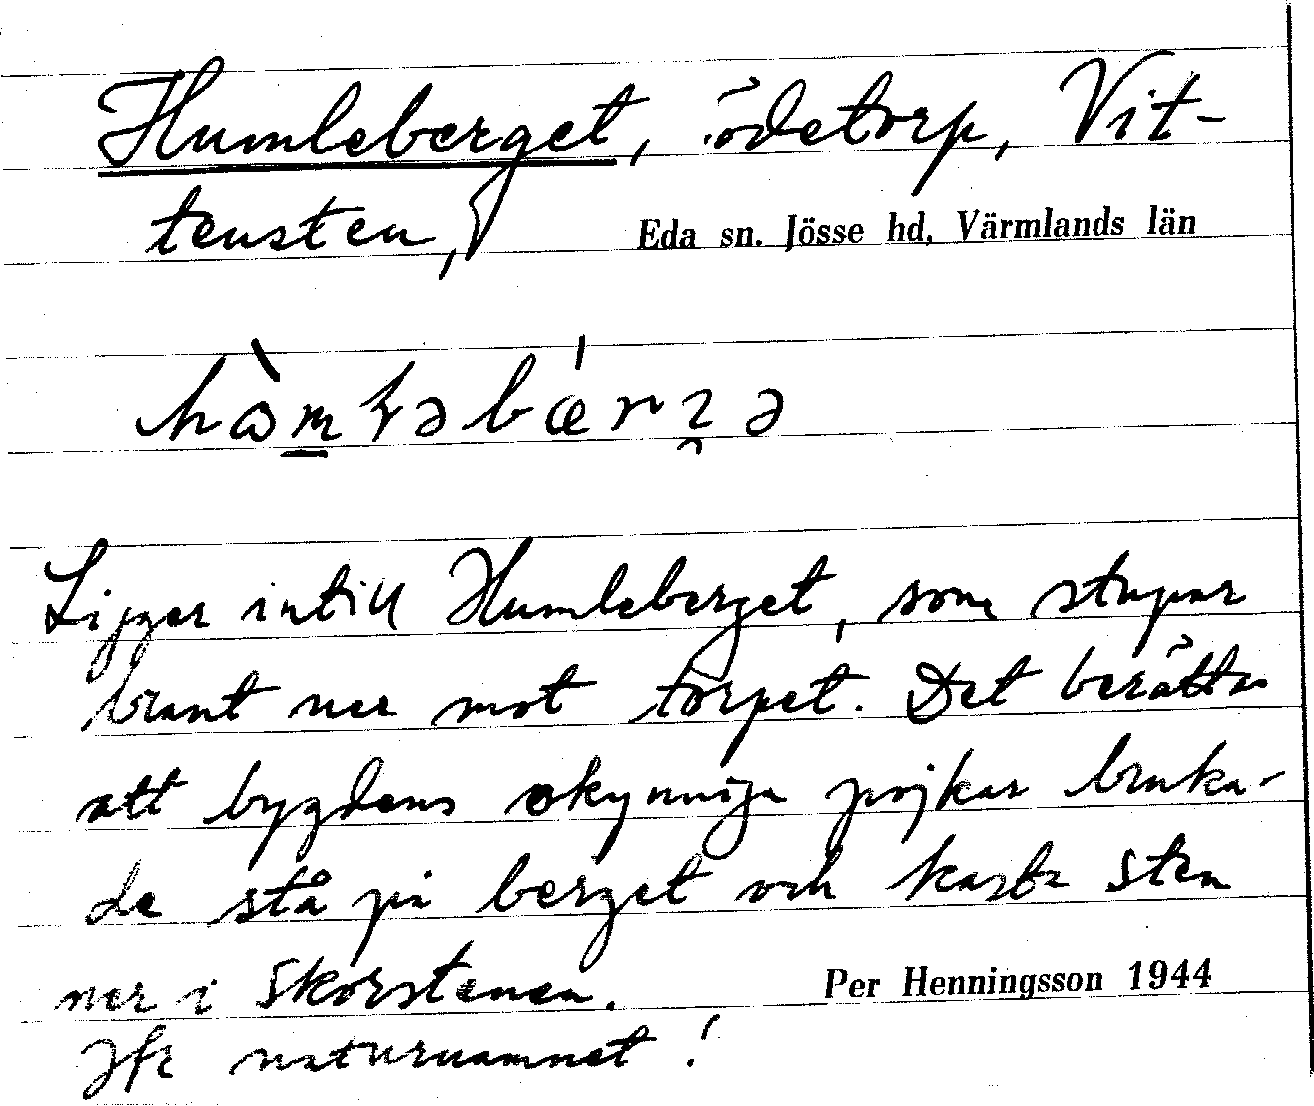 Humleberget, ödetorp, Vit-
tensten, Eda sn. Jösse hd, Värmlands län
Ligger intill Humleberget, som stupar
brant ner mot torpet. Det berättas
att bygdens okynniga pojkar bruka-
de stå på berget och kasta sten
ner i skorstenen. Per Henningsson 1944
Jfr naturnamnet!